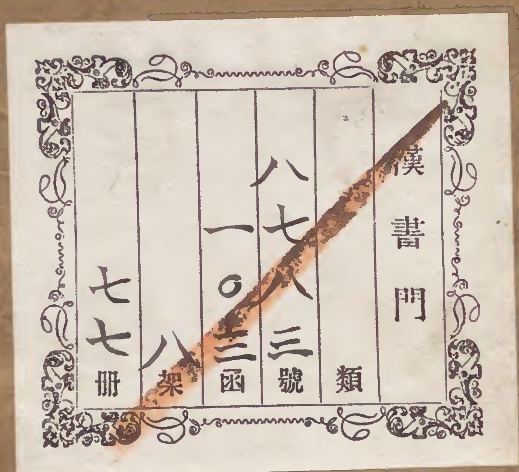 漢書門
類
八七八三號
一〇三函
八架
七七冊